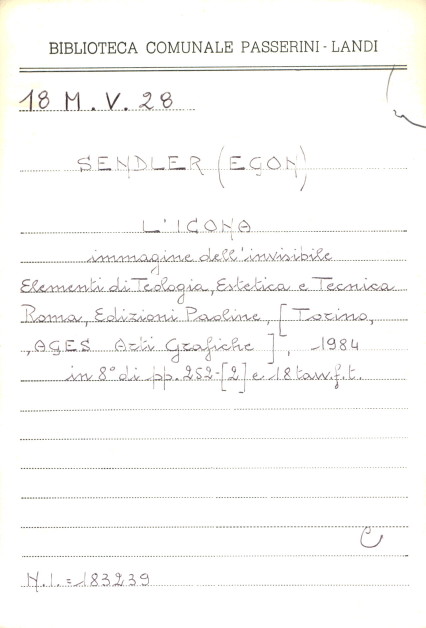 BIBLIOTECA COMUNALE PASSERINI - LANDI
18 M. V. 28
SENDLER (EGON)
L'ICONA
immagine dell'invisibile
Elementi di Teologia, Estetica e Tecnica
Roma, Edizioni Paoline, [Torino,
AGES Arti Grafiche], 1984
in 8° di pp. 252-[2] e 18 tav. f. t.
C
N.I. = 183239